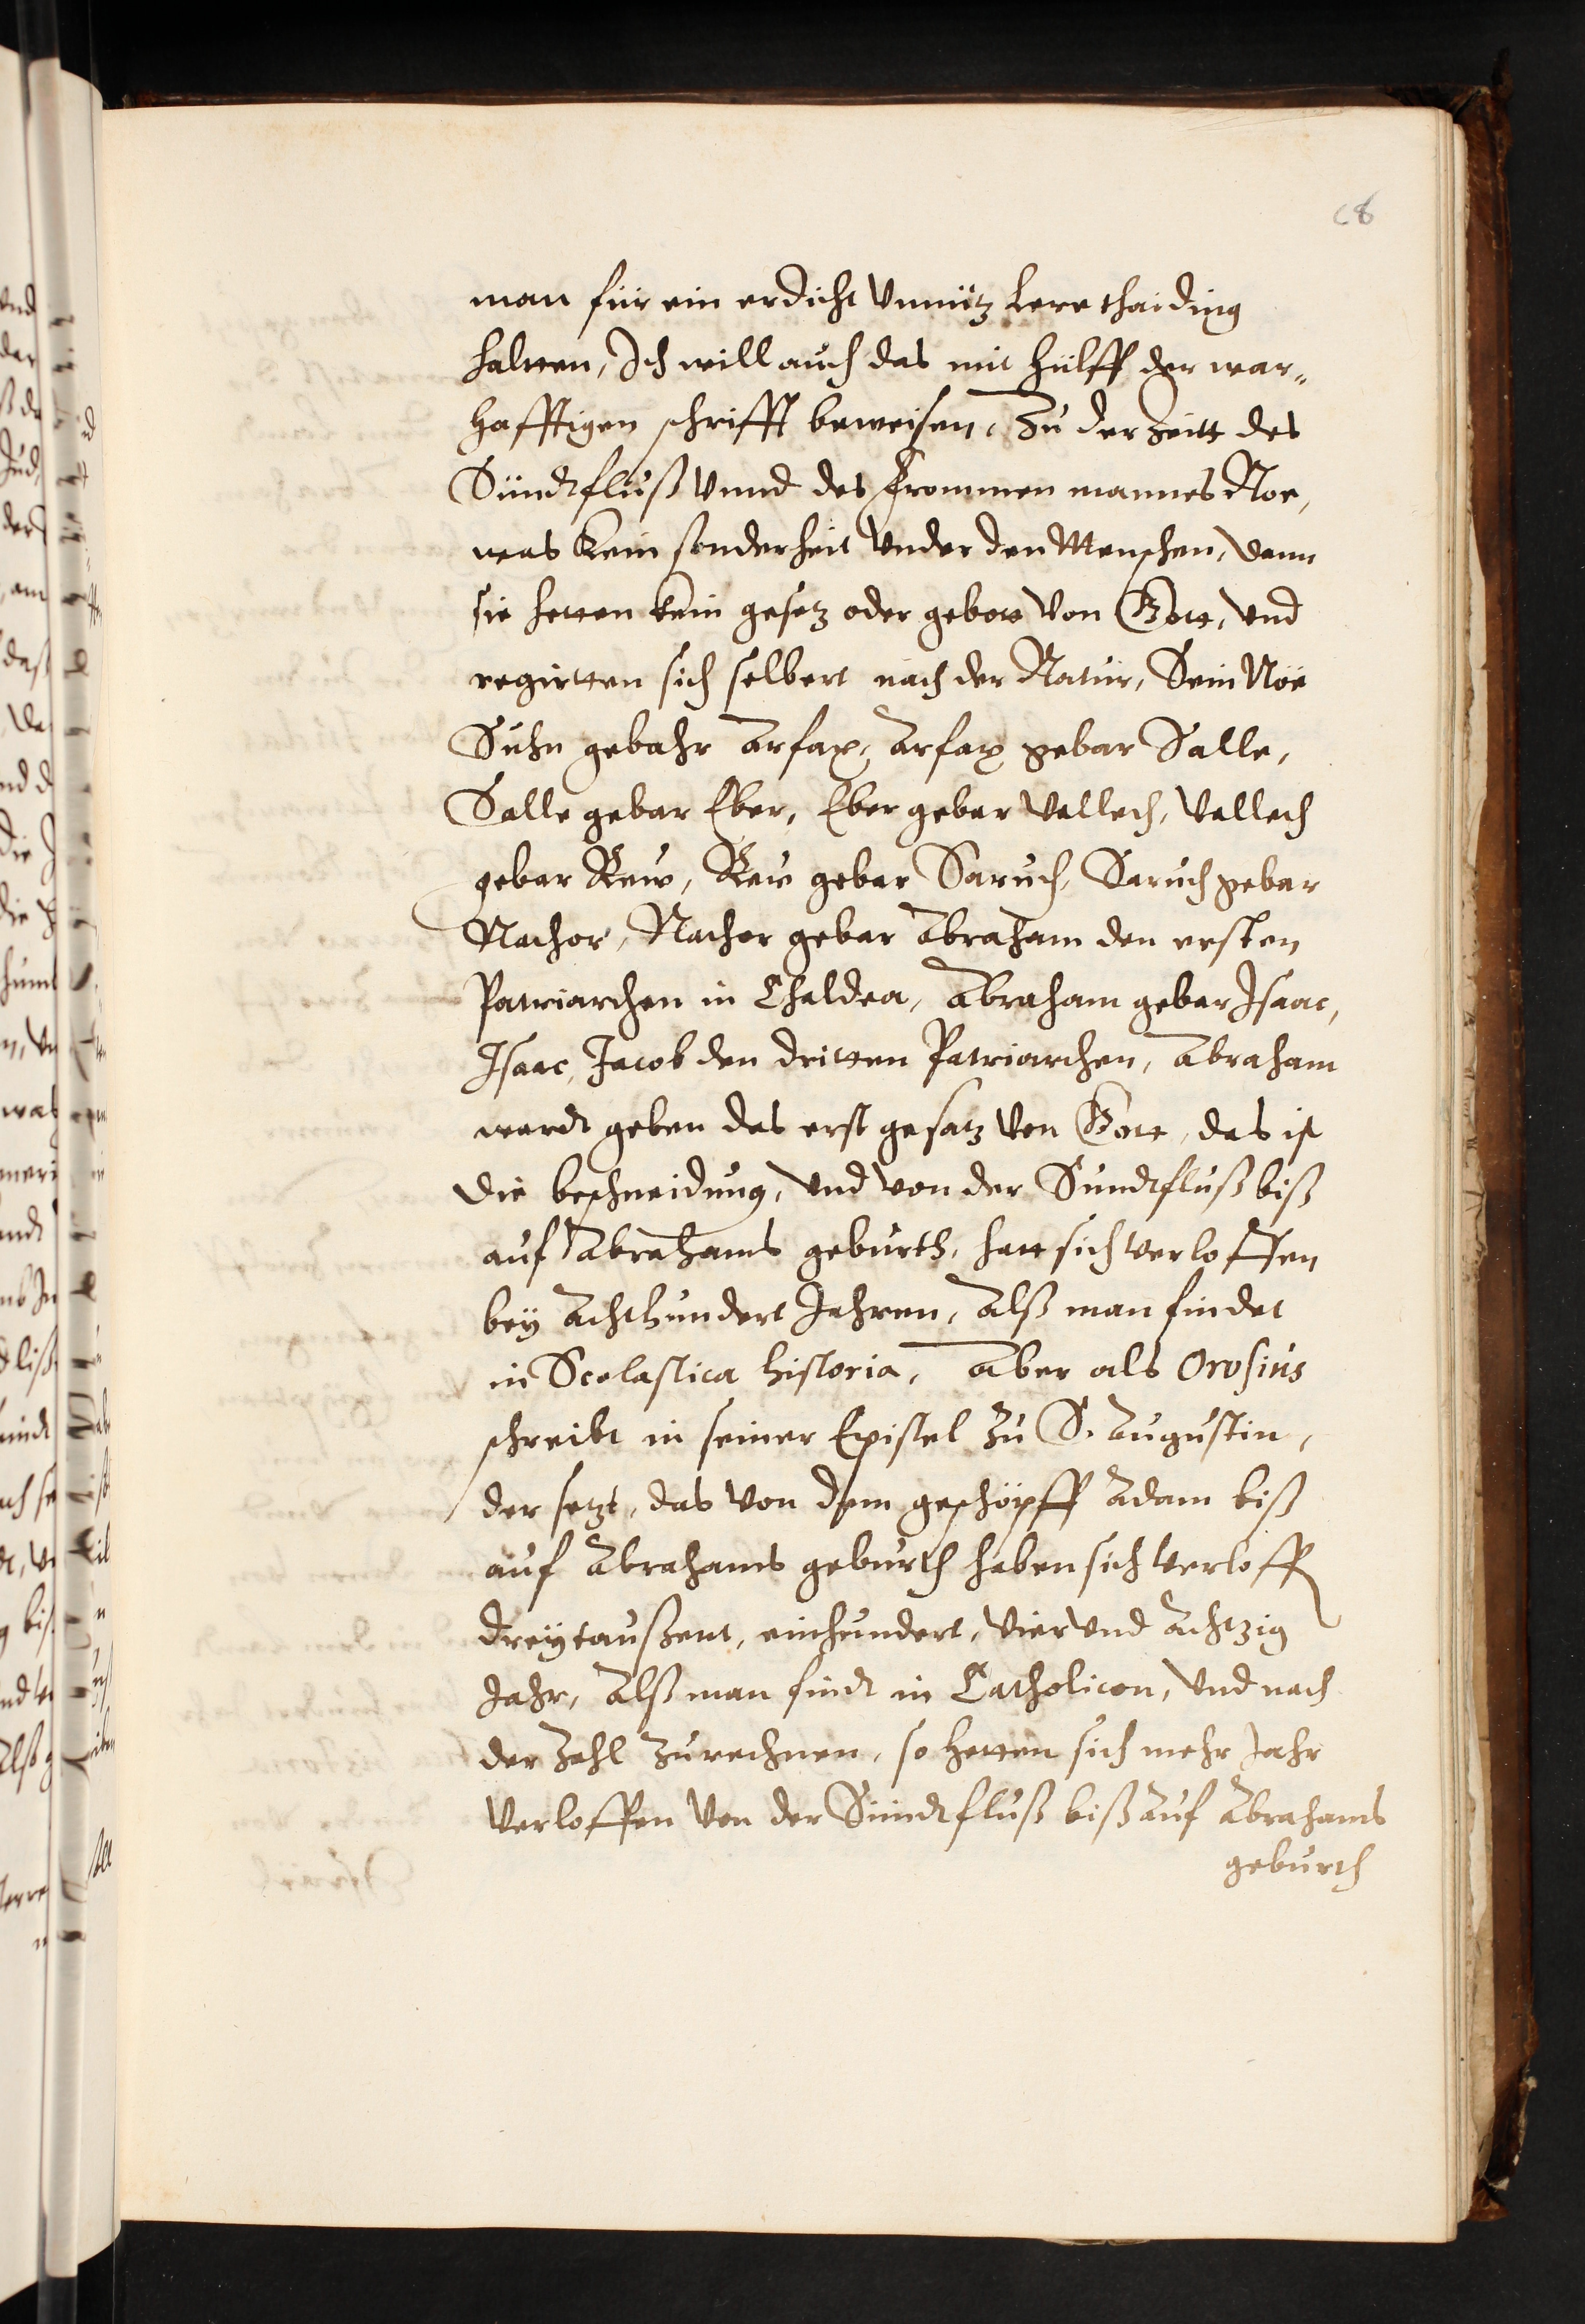 68
man für ein erdicht Vnnütz Lere thaiding
haltten, Ich will auch das mit hülff der war„
hafftigen schrifft beweisen, Zu der Zeitt des
Sündtfluß Vnnd des Frommen mannes Noe,
was Kein sonderheit Vnder den Menschen, dann
sie hetten kein gesetz oder gebott Von Gott, Vnd
regirtten sich selbert nach der Natur, Sein Nöe
Suhn gebahr Arfax, Arfax gebar Salle,
Salle gebar Eber, Eber gebar Vallech, Vallech
gebar Rew, Rew gebar Saruch, Saruch gebar
Nachor, Nachor gebar Abraham den ersten
Patriarchen in Chaldea, Abraham gebar Isaac,
Isaac, Jacob den dritten Patriarchen, Abraham
wardt geben das erst gesatz Von Gott, das ist
die beschneidung, Vnd von der Sundtfluß biß
auf Abrahams geburth, hatt sich Verloffen
bey Achthundert Jahren, Alß man findet
in Scolastica historia, Aber als Orosius
schreibt in seiner Epistel Zu S. Augustin,
der setzt, das Von dem geschöpff Adam biß
auf Abrahams geburth haben sich Verloff
dreytaußent, einhundert, Vier Vnd Achtzig
Jahr, Alß man findt in Catholicon, Vnd nach
der Zahl Zurechnen, so hetten sich mehr Jahr
Verloffen Von der Sündtfluß biß Auf Abrahams
geburth